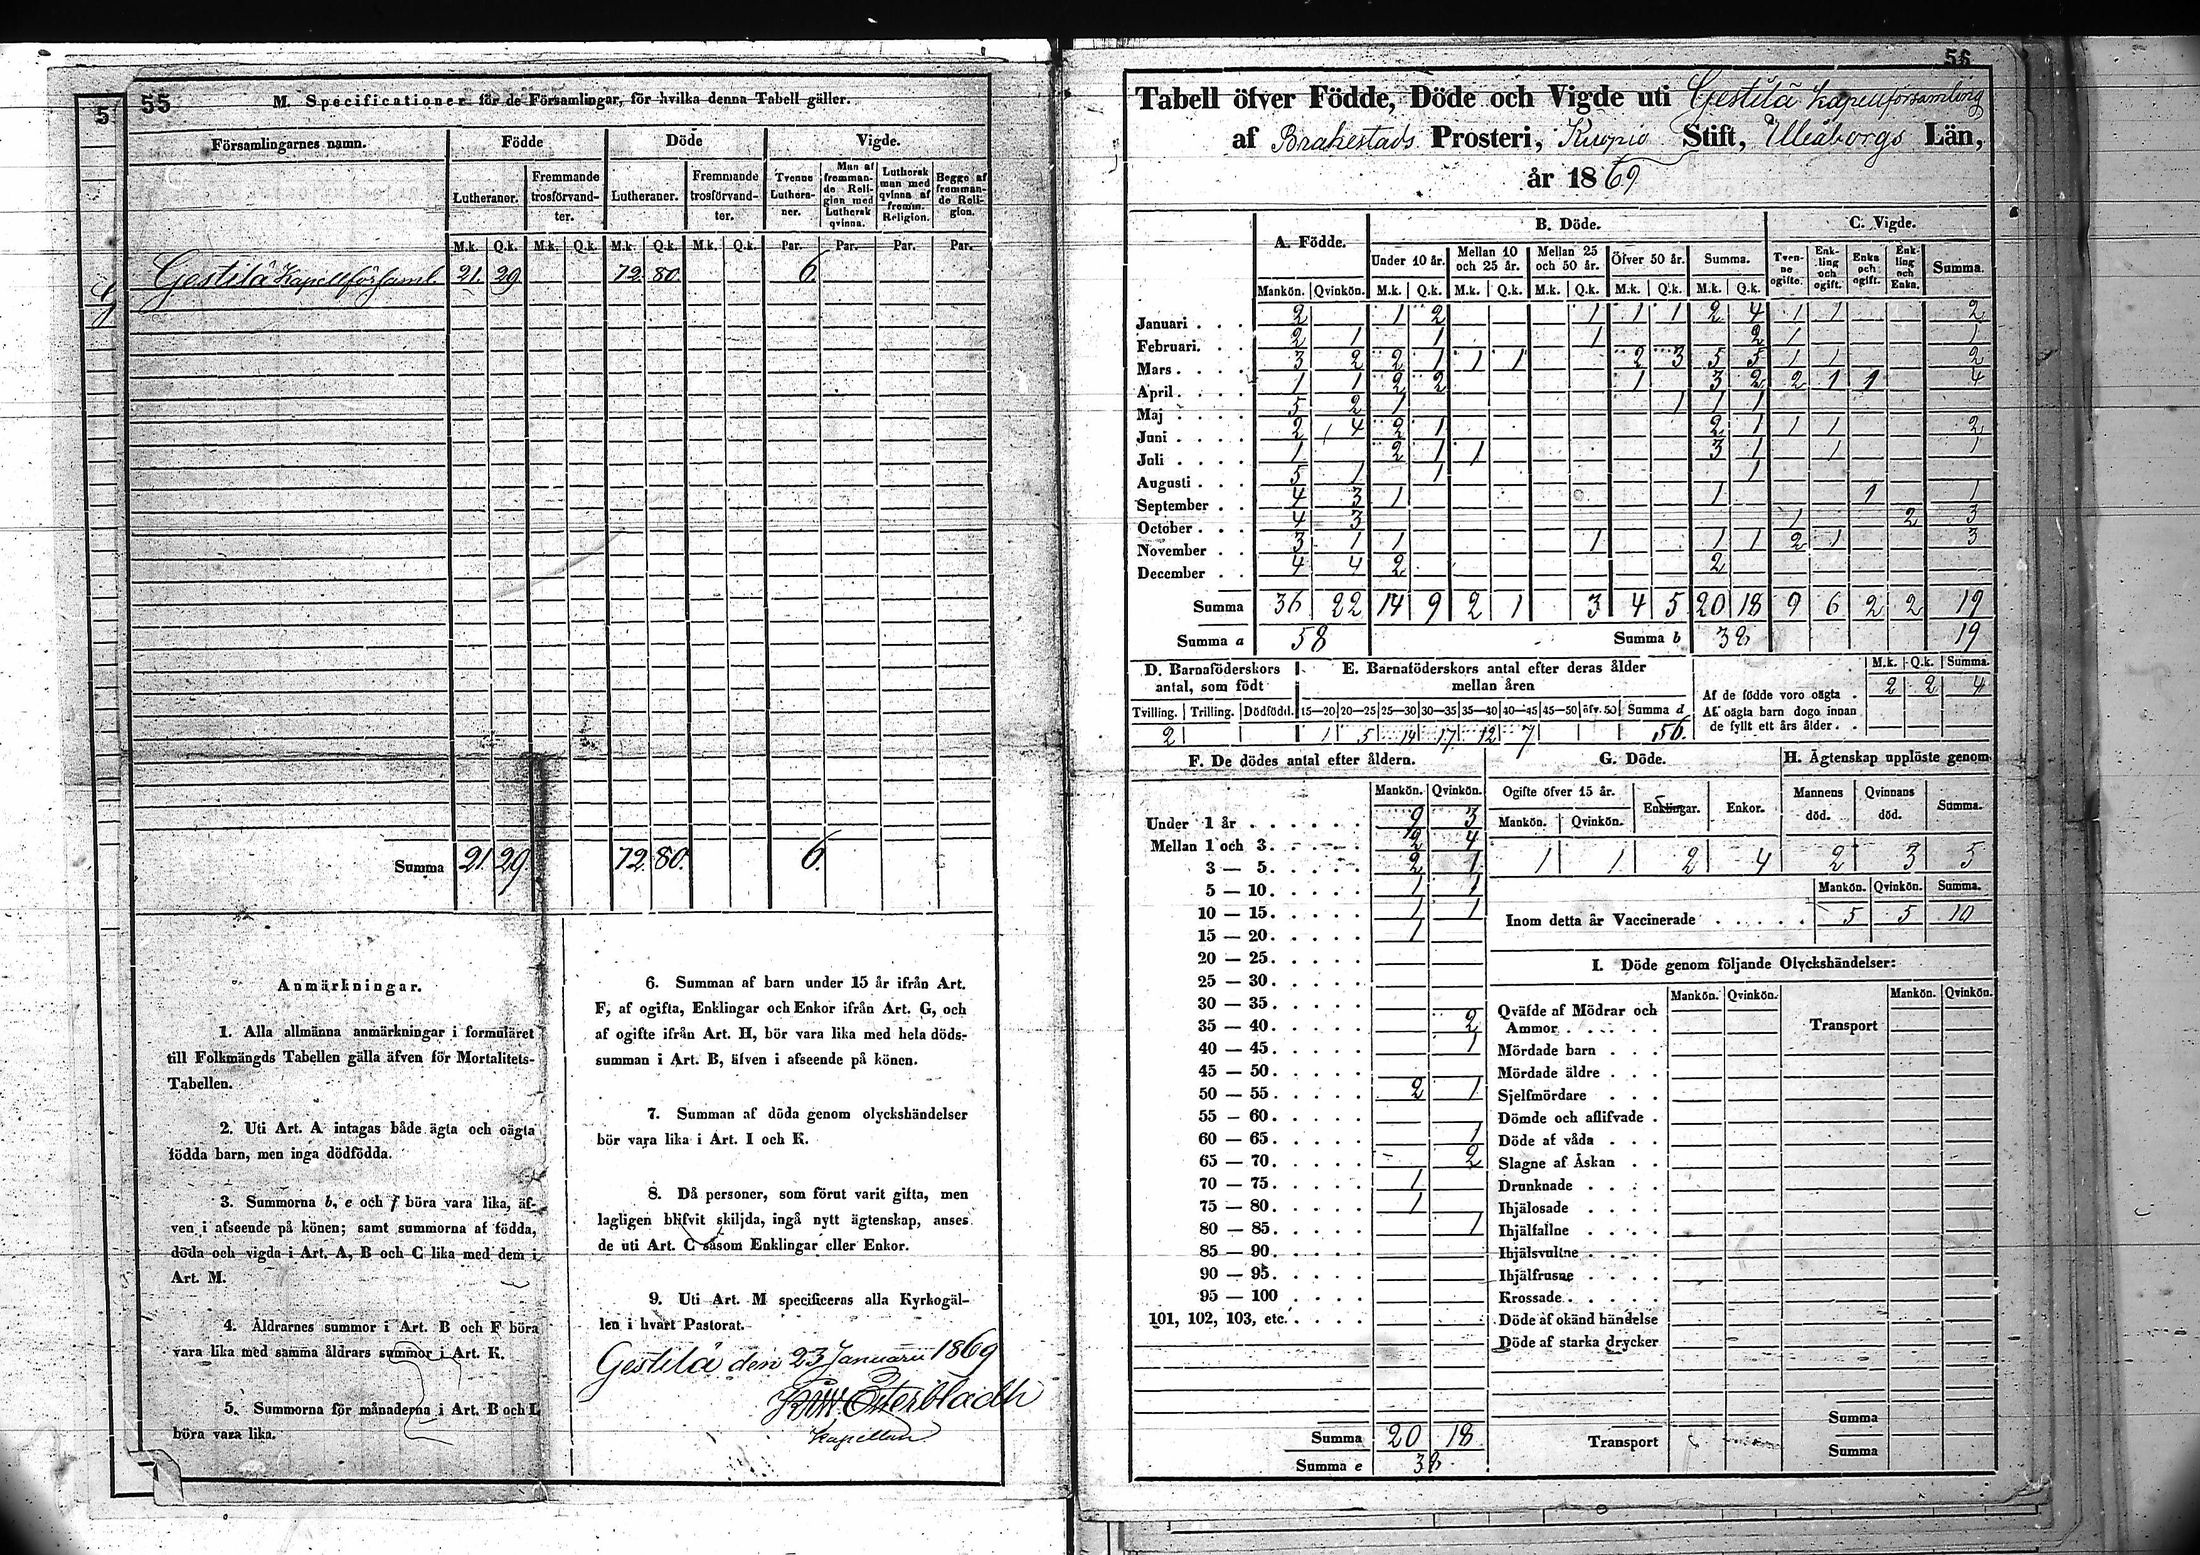 55
M. Specificationer för de Församlingar, för hvilka denna Tabell gäller.
Församlingarnes namn.
Födde
Döde
Vigde.
Lutheraner.
Fremmande trosförvand-ter.
Lutheraner.
Fremmande trosförvand-ter.
Tvenne Luthera-ner.
Man af fremman-de Reli-gion med Luthersk qvinna.
Luthersk man med qvinna af fremm. Religion.
Begge af fremman-de Reli-gion.
M.k. Q.k. M.k. Q.k. M.k. Q.k. M.k. Q.k. Par. Par. Par. Par.
Gestilä Kapellförsaml. 21. 29 72. 80. 6.
Summa 21. 29. 72. 80. 6.
Anmärkningar.
1. Alla allmänna anmärkningar i formuläret
till Folkmängds Tabellen gälla äfven för Mortalitets-
Tabellen.
2. Uti Art. A intagas både ägta och oägta
födda barn, men inga dödfödda.
3. Summorna b, e och f böra vara lika, äf-
ven i afseende på könen; samt summorna af födda,
döda och vigda i Art. A, B och C lika med dem i
Art. M.
4. Åldrarnes summor i Art. B och F böra
vara lika med samma åldrars summor i Art. K.
5. Summorna för månaderna i Art. B och L
böra vara lika.
6. Summan af barn under 15 år ifrån Art.
F, af ogifta, Enklingar och Enkor ifrån Art. G, och
af ogifte ifrån Art. H, bör vara lika med hela döds-
summan i Art. B, äfven i afseende på könen.
7. Summan af döda genom olyckshändelser
bör vara lika i Art. I och K.
8. Då personer, som förut varit gifta, men
lagligen blifvit skiljda, ingå nytt ägtenskap, anses
de uti Art. C såsom Enklingar eller Enkor.
9. Uti Art. M specificeras alla Kyrkogäl-
len i hvart Pastorat.
Gestilä den 23 Januarii 1869
Österbladh
Kapellan
56
Tabell öfver Födde, Döde och Vigde uti Gestilä Kapellförsamling
af Brahestads Prosteri, Kuopio Stift, Uleåborgs Län,
år 1869
A. Födde.
B. Döde.
C. Vigde.
Under 10 år. Mellan 10 och 25 år. Mellan 25 och 50 år. Öfver 50 år. Summa.
Tven-ne ogifte. Enk-ling och ogift. Enka och ogift. Enk-ling och Enka. Summa.
Mankön. Qvinkön. M.k. Q.k. M.k. Q.k. M.k. Q.k. M.k. Q.k. M.k. Q.k.
Januari . . . 2 1 2 1 1 1 2 4 1 1 2
Februari. . . 2 1 1 1 2 1 1
Mars . . . . 3 2 2 1 1 1 2 3 5 5 1 1 2
April . . . . 1 1 2 2 1 3 2 2 1 1 4
Maj . . . . 5 2 1 1 1 1
Juni . . . . 2 4 2 1 2 1 1 1 2
Juli . . . . 1 2 1 1 3 1 1 1
Augusti . . . 5 1 1 1
September . . 4 3 1 1 1 1
October . . . 4 3 1 2 3
November . . 3 1 1 1 1 1 2 1 3
December . . 4 4 2 2
Summa 36 22 14 9 2 1 3 4 5 20 18 9 6 2 2 19
Summa a 58 Summa b 38 19
D. Barnaföderskors antal, som födt
Tvilling. Trilling. Dödfödd.
2
E. Barnaföderskors antal efter deras ålder mellan åren
15—20 20—25 25—30 30—35 35—40 40—45 45—50 öfv. 50 Summa d
1 5 14 17 12 7 56.
M.k. Q.k. Summa.
Af de födde voro oägta . 2 2 4
Af oägta barn dogo innan
de fyllt ett års ålder. . .
F. De dödes antal efter åldern.
Mankön. Qvinkön.
Under 1 år . . . . . . 9 3
Mellan 1 och 3. . . . . 2 4
3 — 5. . . . . 2 1
5 — 10. . . . . 1 1
10 — 15. . . . . 1 1
15 — 20. . . . . 1
20 — 25. . . . .
25 — 30. . . . .
30 — 35. . . . .
35 — 40. . . . . 2
40 — 45. . . . . 1
45 — 50. . . . .
50 — 55. . . . . 2 1
55 — 60. . . . .
60 — 65. . . . . 1
65 — 70. . . . . 2
70 — 75. . . . . 1
75 — 80. . . . . 1
80 — 85. . . . . 1
85 — 90. . . . .
90 — 95. . . . .
95 — 100 . . . .
101, 102, 103, etc. . . . .
Summa 20 18
Summa e 38
G. Döde.
Ogifte öfver 15 år. Enklingar. Enkor.
Mankön. Qvinkön.
1 1 2 4
H. Ägtenskap upplöste genom
Mannens död. Qvinnans död. Summa.
2 3 5
Mankön. Qvinkön. Summa.
Inom detta år Vaccinerade . . . . . 5 5 10
I. Döde genom följande Olyckshändelser:
Mankön. Qvinkön. Mankön. Qvinkön.
Qväfde af Mödrar och
Ammor . . . . . Transport
Mördade barn . . .
Mördade äldre . . .
Sjelfmördare . . .
Dömde och aflifvade .
Döde af våda . . .
Slagne af Åskan . .
Drunknade . . . .
Ihjälosade . . . .
Ihjälfallne . . . .
Ihjälsvultne . . . .
Ihjälfrusne . . . .
Krossade . . . . .
Döde af okänd händelse
Döde af starka drycker
Summa
Transport Summa